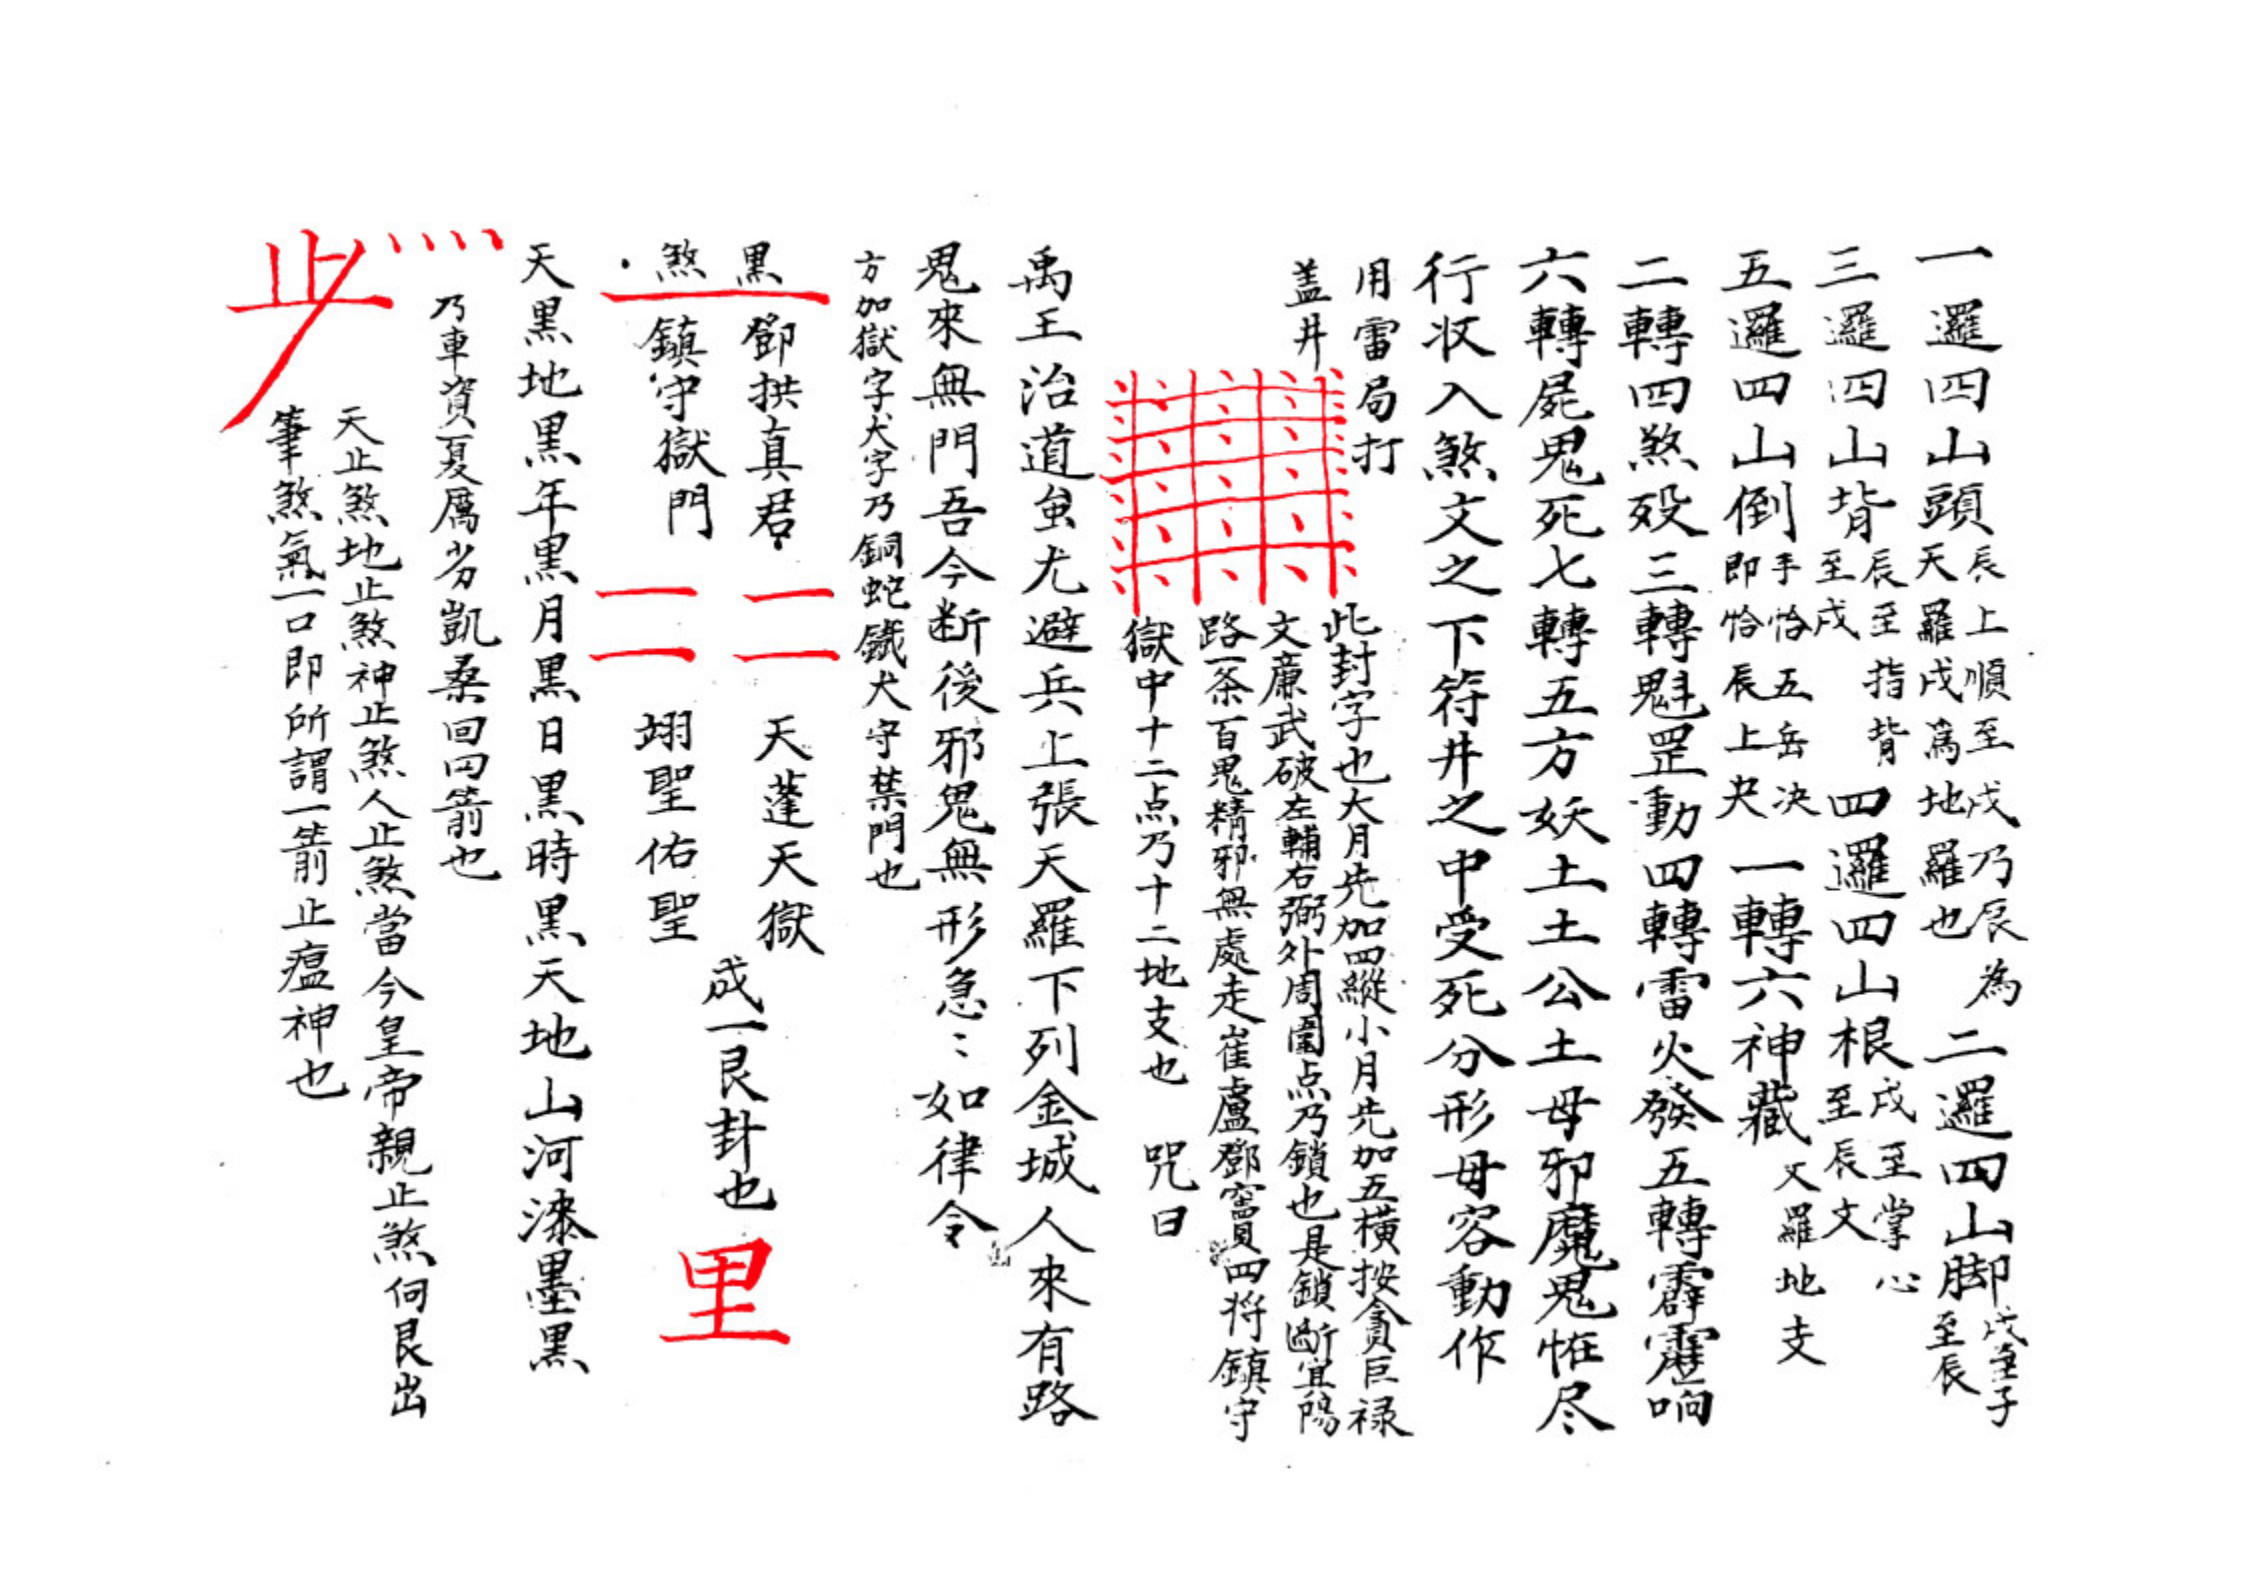 一邏四山頭
辰上順至戌乃辰為
天羅戌為地羅也
二邏四山脚
戌至子
至辰
三邏四山背
辰至指背
至戌
四邏四山根
戌至掌心
至辰文
五邏四山倒
手恰五岳决
即恰辰上夬
一轉六神藏
又羅地支
二轉四煞殁三轉魁罡動四轉雷火發五轉霹靂响
六轉屍鬼死七轉五方妖土土公土母邪魔鬼恠尽
行收入煞文之下符井之中受死分形毋容動作
用雷局打
盖井
此封字也大月先加四縱小月先加五横按貪巨禄
文廉武破左輔右弼外周圍点乃鎖也是鎖断宜陽
路一条百鬼精邪無處走崔盧鄧竇四将鎮守
獄中十二点乃十二地支也 咒曰
禹王治道蚩尤避兵上張天羅下列金城人來有路
鬼來無門吾今断後邪鬼無形急々如律令
方加獄字犬字乃銅蛇鐵犬守禁門也
黑 鄧拱真君 二 天蓬天獄
煞 鎮守獄門 二 翊聖佑聖
成一艮卦也 里
天黑地黑年黑月黑日黑時黑天地山河漆墨黑
乃車資夏厲岁凱桑回四箭也
步
天止煞地止煞神止煞人止煞當今皇帝親止煞伺艮出
筆煞氣一口即所謂一箭止瘟神也